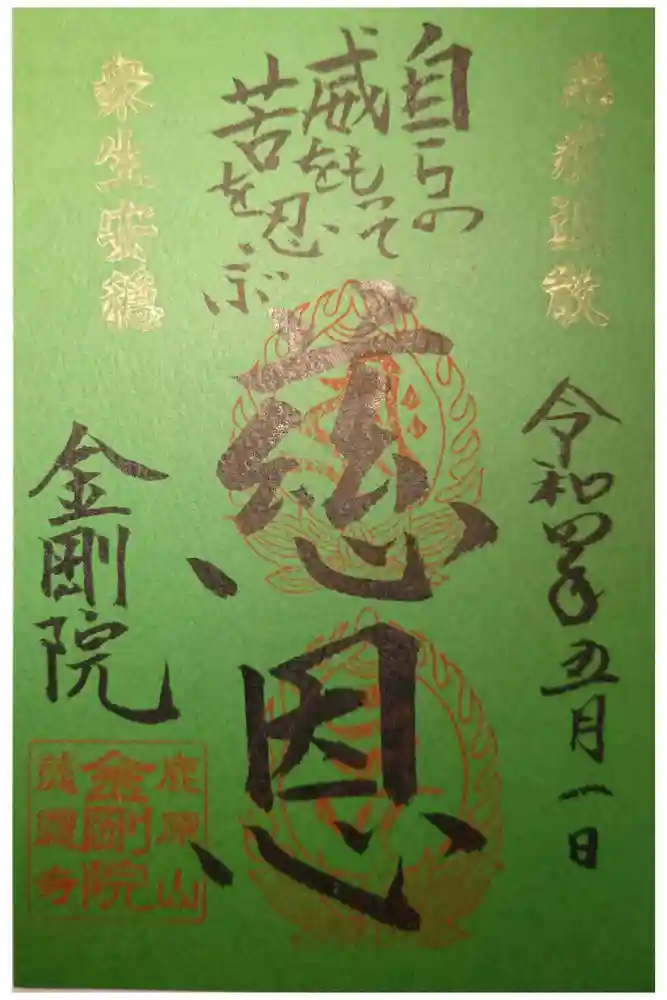 悪疫退散
令和四年五月一日
自らの
威をもって
苦を忍ぶ
慈恩
衆生安穏
金剛院
鹿原山
金剛院